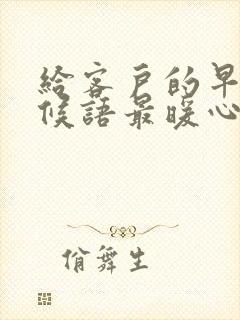 給客戶的早
候語最暖心
俏舞生